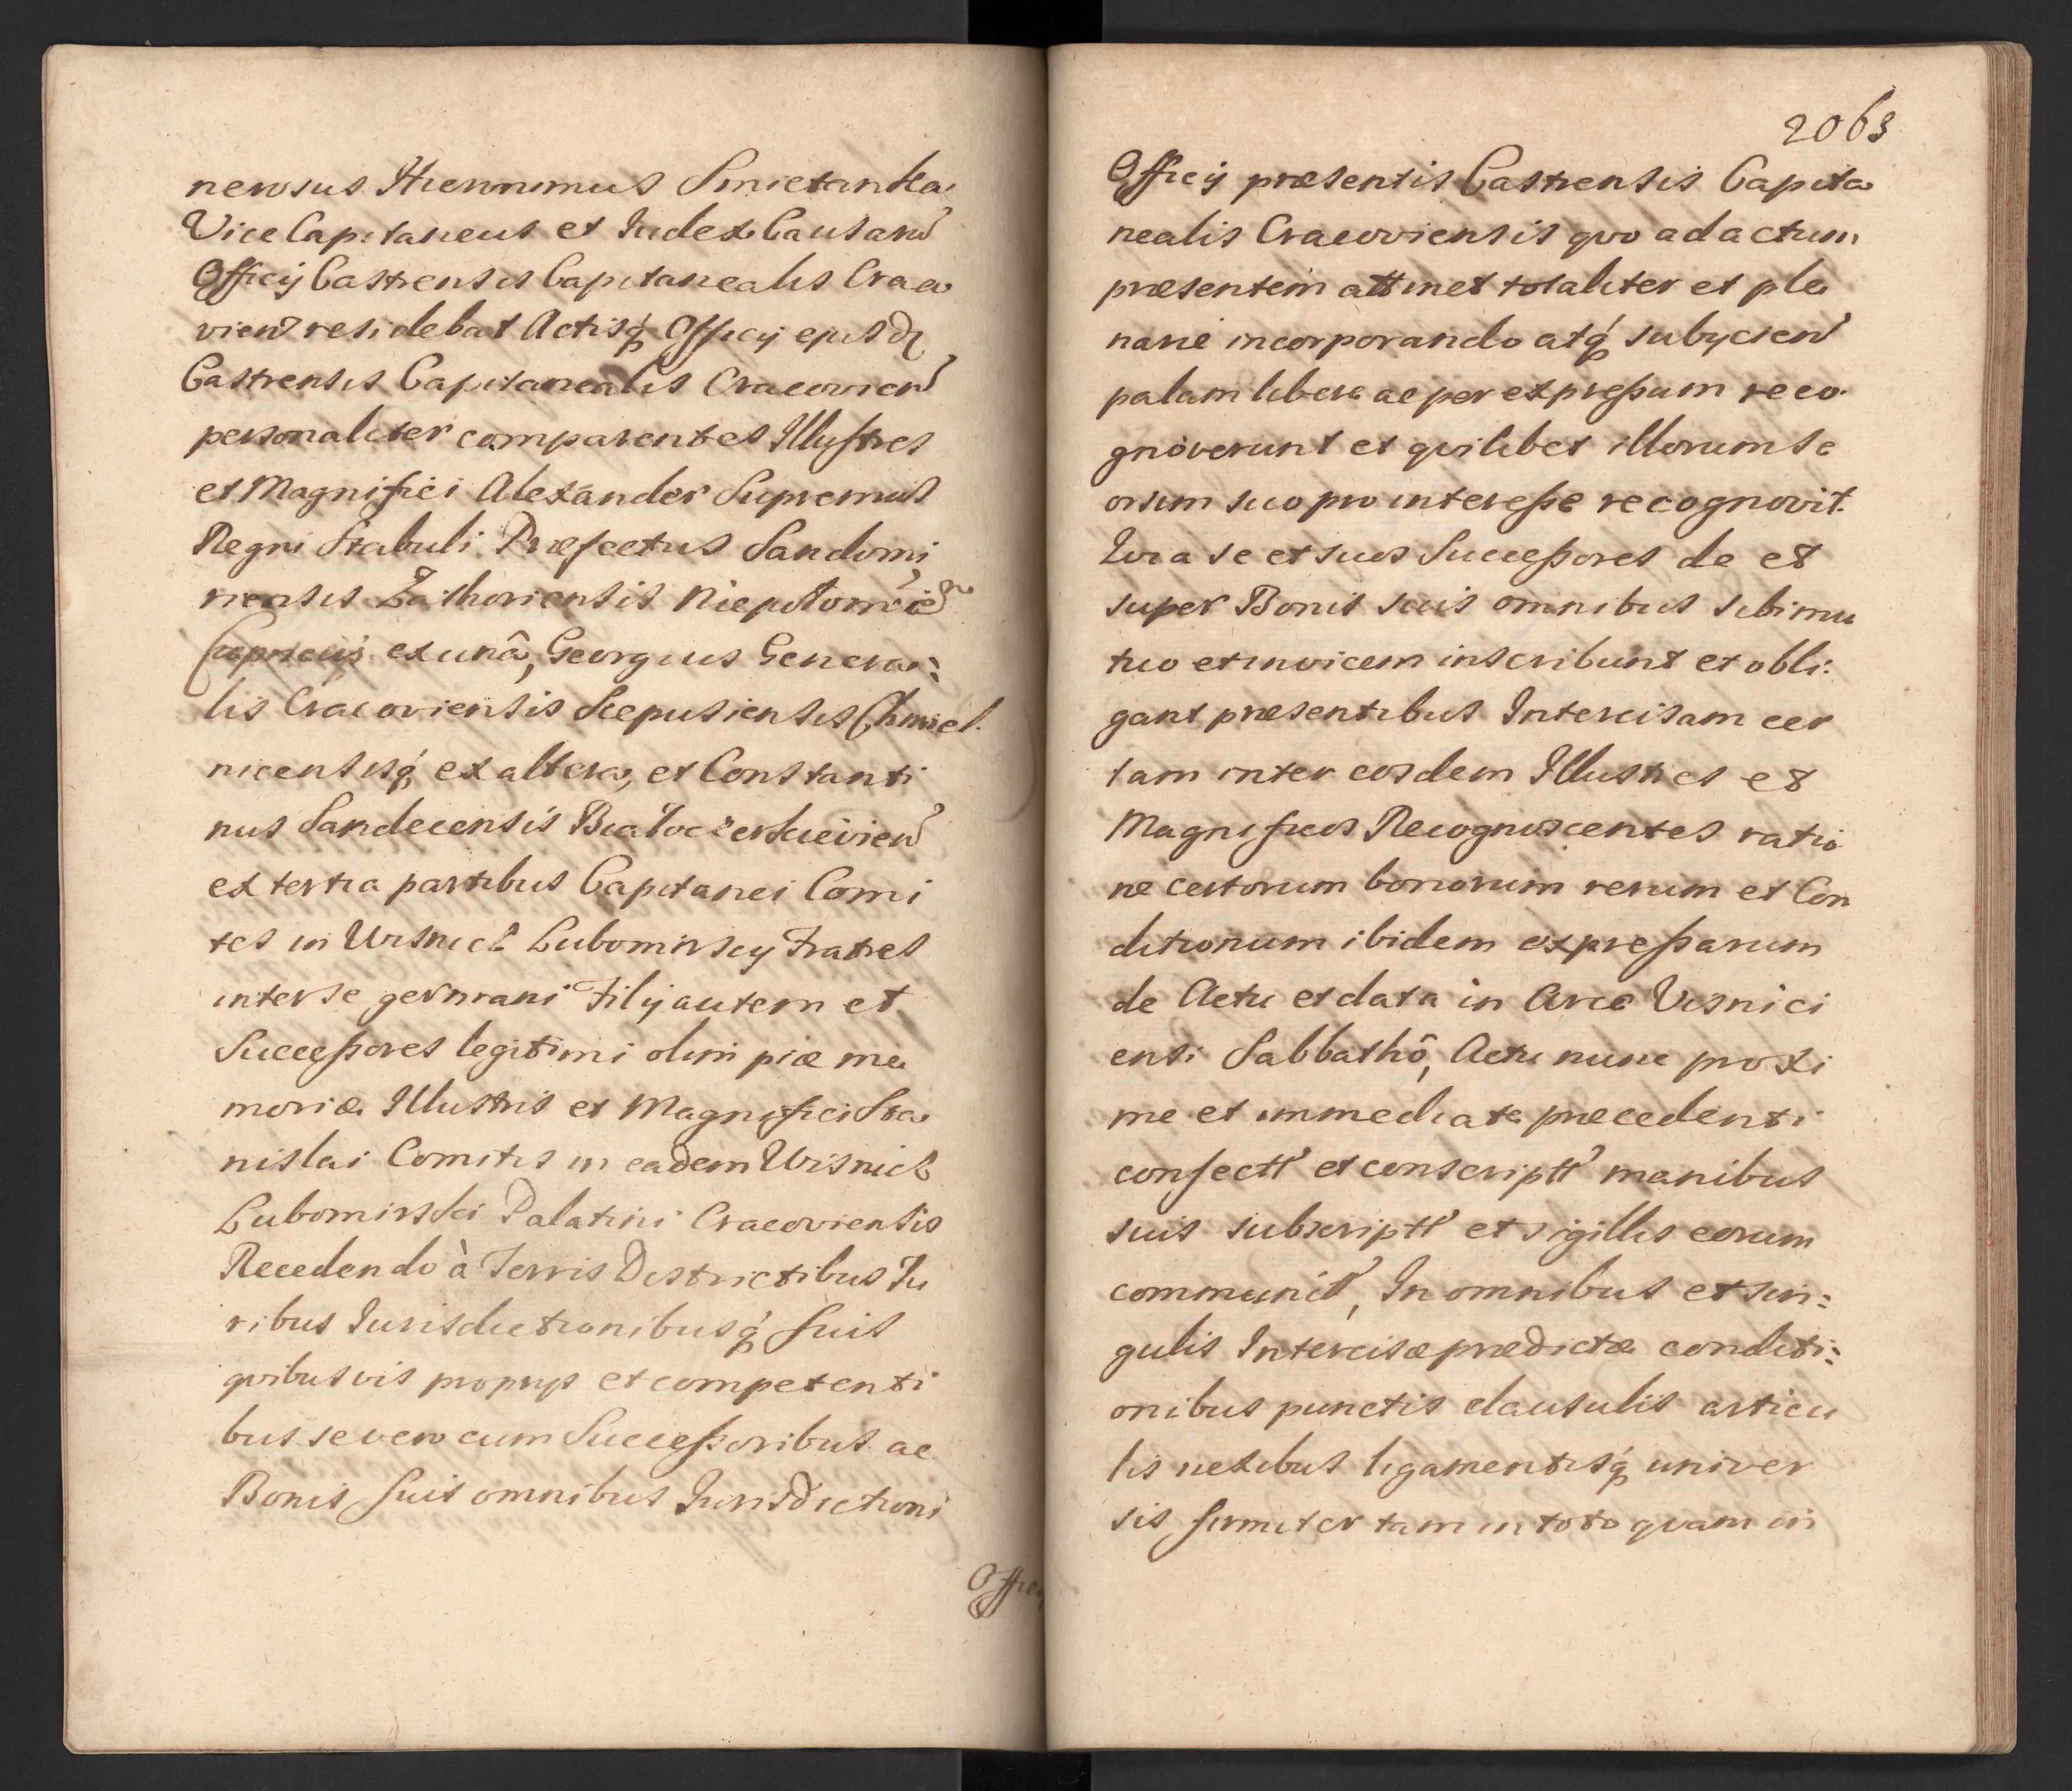 nerosus Hieronimus Smietanka
Vice Capitaneus et Iudex Causarū
Officij Castrensis Capitanealis Craco
vien̄ residebat Actisq́ Officij ejusd
Castrensis Capitanealis Cracovien̄
personaliter comparentes Illustres
et Magnifici Alexander Supremus
Regni Stabuli Præfectus Sandomi
riensis Zathoriensis Niepołomic̄
Capricij ex unâ, Georgius Genera:
lis Cracoviensis Scepusiensis Chmiel
nicensisq́ ex altera, et Constanti
nus Sandecensis Białocerkievien̄
ex tertia partibus Capitanei Comi
tes in Wisnicz Lubomirscy Fratres
inter se germani Filij autem et
Successores legitimi olim piæ me
moriæ Illustris et Magnifici Sta
nislai Comitis in eadem Wisnicz
Lubomirski Palatini Cracoviensis
Recedendo à Terris Districtibus Iu
ribus Iurisdictionibusq́ suis
qvibusvis proprijs et competenti
bus se vero cum Successoribus ac
Bonis suis omnibus Iurisdictioni
Officij
2063
Officij præsentis Castrensis Capita
nealis Cracoviensis qvo ad actum
præsentem attinet totaliter et ple
narie incorporando atq́ subijcien̄
palam libere ac per expressum reco
gnoverunt et qvilibet illorum se
orsim suo pro interesse recognovit.
Qvia se et suos Successores de et
super Bonis suis omnibus sibi mu
tuo et invicem inscribunt et obli:
gant præsentibus Intercisam cer
tam inter eosdem Illustres et
Magnificos Recognoscentes ratio
ne certorum bonorum rerum et Con
ditionum ibidem expressarum
de Actu et data in Arce Visnici
ensi Sabbathô, Actu nunc proxi
me et immediate præcedenti
confectt et conscriptt manibus
suis subscriptt et sigillis eorum
communitt, In omnibus et sin:
gulis Intercisæ prædictæ conditi:
onibus punctis clausulis articu
lis nexibus ligamentisq́ univer
sis firmiter tam in toto qvam in